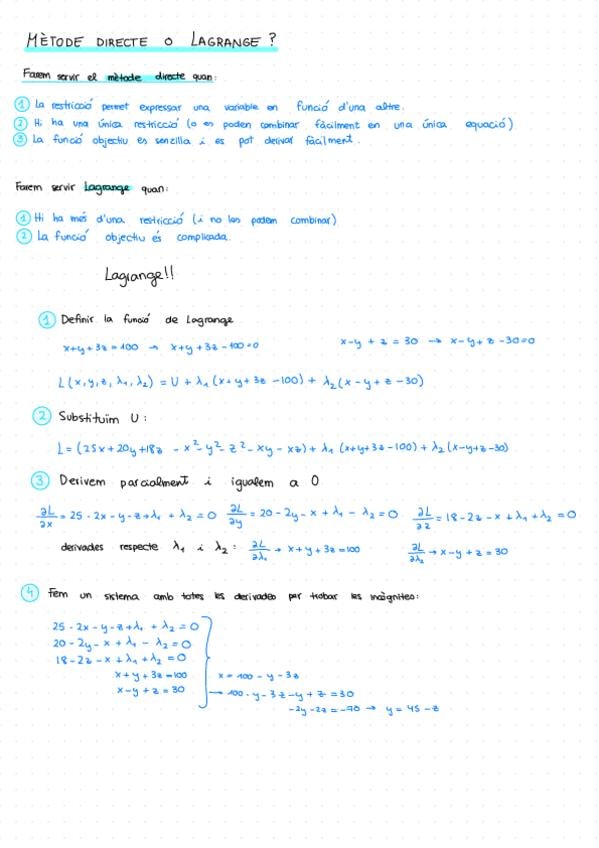 MÈTODE DIRECTE O LAGRANGE?
Farem servir el mètode directe quan:
① La restricció permet expressar una variable en funció d'una altre.
② Hi ha una única restricció (o es poden combinar fàcilment en una única equació)
③ La funció objectiu és senzilla i es pot derivar fàcilment.
Farem servir Lagrange quan:
① Hi ha més d'una restricció (i no les podem combinar)
② La funció objectiu és complicada.
Lagrange!!
① Definir la funció de Lagrange
x+y+3z=100 → x+y+3z-100=0 x-y+z=30 → x-y+z-30=0
L(x,y,z,λ₁,λ₂) = U + λ₁(x+y+3z-100) + λ₂(x-y+z-30)
② Substituïm U:
L=(25x+20y+18z - x²-y²-z²-xy-xz)+λ₁(x+y+3z-100)+λ₂(x-y+z-30)
③ Derivem parcialment i igualem a 0
∂L/∂x = 25-2x-y-z+λ₁+λ₂=0 ∂L/∂y = 20-2y-x+λ₁-λ₂=0 ∂L/∂z = 18-2z-x+λ₁+λ₂=0
derivades respecte λ₁ i λ₂: ∂L/∂λ₁ → x+y+3z=100 ∂L/∂λ₂ → x-y+z=30
④ Fem un sistema amb totes les derivades per trobar les incògnites:
25-2x-y-z+λ₁+λ₂=0
20-2y-x+λ₁-λ₂=0
18-2z-x+λ₁+λ₂=0
x+y+3z=100 x=100-y-3z
x-y+z=30 → 100-y-3z-y+z=30
-2y-2z=-70 → y=45-z